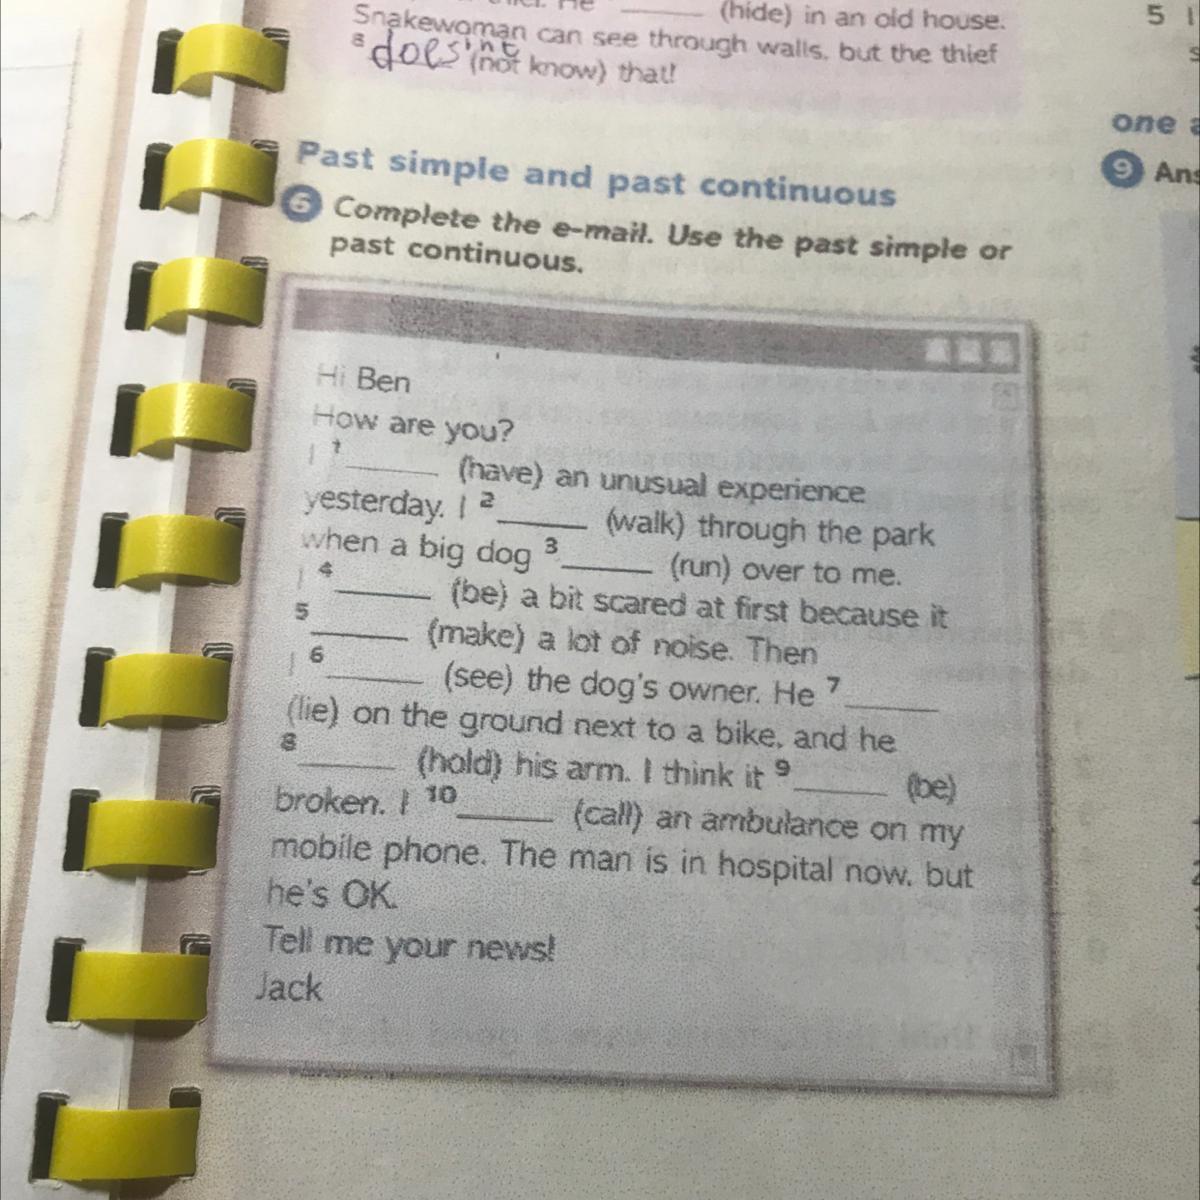 He _____ (hide) in an old house.
Snakewoman can see through walls, but the thief
8 does'nt (not know) that!
Past simple and past continuous
6 Complete the e-mail. Use the past simple or
past continuous.
Hi Ben
How are you?
I 1 _____ (have) an unusual experience
yesterday. I 2 _____ (walk) through the park
when a big dog 3 _____ (run) over to me.
I 4 _____ (be) a bit scared at first because it
5 _____ (make) a lot of noise. Then
I 6 _____ (see) the dog's owner. He 7 _____
(lie) on the ground next to a bike, and he
8 _____ (hold) his arm. I think it 9 _____ (be)
broken. I 10 _____ (call) an ambulance on my
mobile phone. The man is in hospital now, but
he's OK.
Tell me your news!
Jack
5
one
9